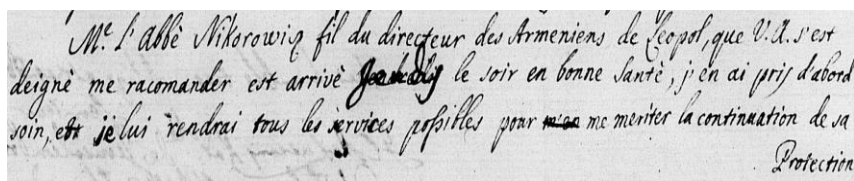 Mr. l'abbè Nikorowiq fil du directeur des Armeniens de Leopol, que V.A. s'est
deignè me racomander est arrivè Jeudy le soir en bonne Santè, j'en ai pris d'abord
soin, et je lui rendrai tous les services possibles pour me meriter la continuation de sa
Protection